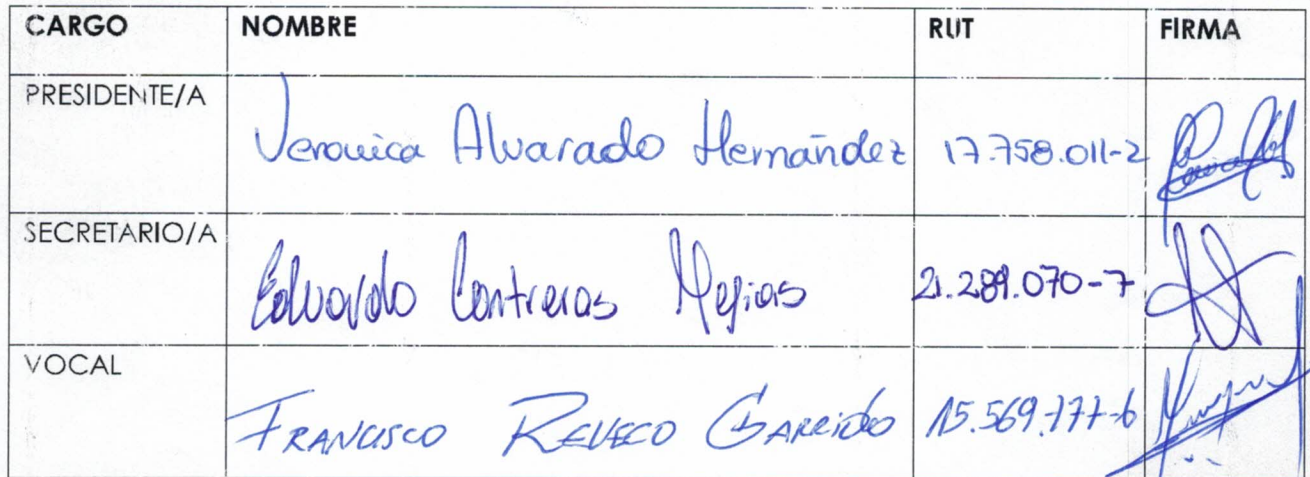 CARGO NOMBRE RUT FIRMA
PRESIDENTE/A Veronica Alvarado Hernández 17.758.011-2
SECRETARIO/A Eduardo Contreras Mejias 21.289.070-7
VOCAL FRANCISCO REVECO GARRIDO 15.569.777-6